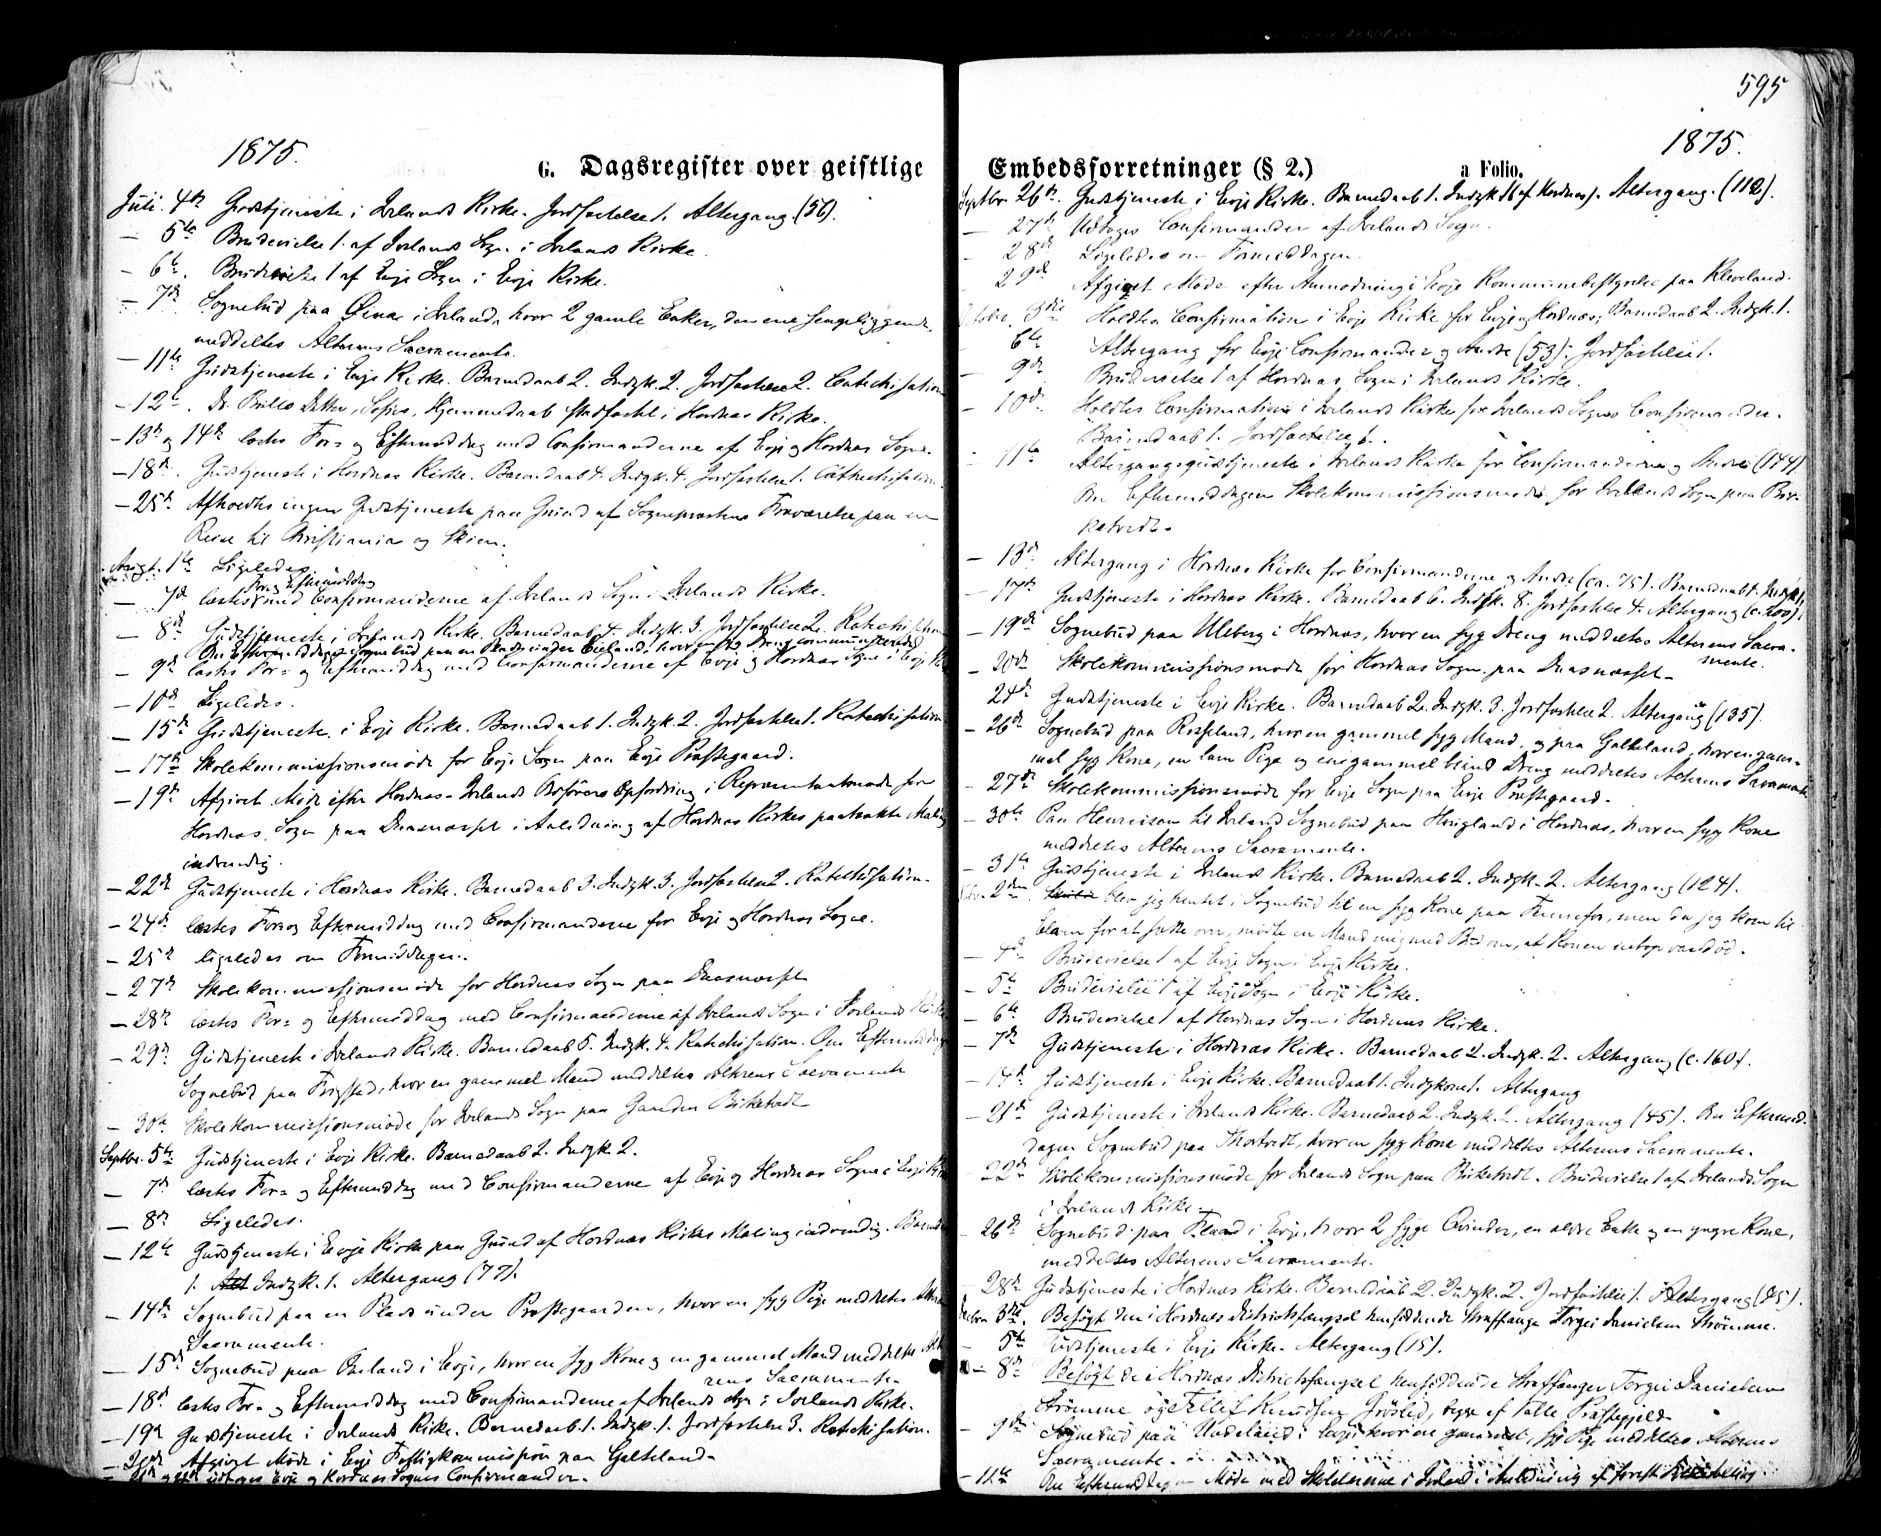 1875.
G. Dagsregister over geistlige
Juli. 4de Gudstjeneste i Ivelands Kirke. Jordfæstelse 1. Altergang (56).
— 5te Brudevielse 1 af Ivelands Sogn i Ivelands Kirke.
— 6te. Brudevielse 1 af Evje Sogn i Evje Kirke.
— 7de Sognebud paa i Iveland, hvor 2 gamle Enker, den ene sengeliggende,
meddeltes Alterens Sacramente.
— 11te Gudstjeneste i Evje Kirke. Barnedaab 2. Indgk. 2. Jordfæstelse 2. Catechisation
— 12te. Dr. Datter, Hjemmedaab stadfæstet i Hordnæs Kirke.
— 13de og 14de læstes For- og Eftermiddag med Confirmanderne af Evje og Hordnæs Sogne.
— 18de. Gudstjeneste i Hordnæs Kirke. Barnedaab 4. Indgk. 4. Jordfæstelse 1. Cathechisation.
— 25de Afholdtes ingen Gudstjeneste paa Grund af Sognepræstens Fraværelse paa en
Reise til Christiania og Skien.
Augt. 1te Ligeledes.
For og Eftermiddag
— 7de læstes med Confirmanderne af Ivelands Sogn i Ivelands Kirke.
— 8de Gudstjeneste i Ivelands Kirke. Barnedaab 4. Indgk. 3. Jordfæstelse 2. Katechisation
Om Eftermiddagen Sognebud paa en Plads under hvor en syg Dreng communicerede
— 9de læstes For- og Eftermiddag med Confirmanderne af Evje og Hordnæs Sogne i Evje
— 10de Ligeledes.
— 15de Gudstjeneste i Evje Kirke. Barnedaab 1. Indgk. 2. Jordfæstelse 1. Katechisation
— 17de Skolekommissionsmøde for Evje Sogn paa Evje Præstegaard.
— 19de Afgivet Møde efter Hordnæs-Ivelands Ordførers Opfordring i Repræsentantmøde for
Hordnæs Sogn paa Daasnæsset i Anledning af Hordnæs Kirkes paatænkte Maling
indvendig.
— 22de Gudstjeneste i Hordnæs Kirke. Barnedaab 3. Indgk. 3. Jordfæstelse 2. Katechisation.
— 24de læstes For og Eftermiddag med Confirmanderne for Evje og Hordnæs Sogne.
— 25de ligeledes om Formiddagen.
— 27de Skolekommissionsmøde for Hordnæs Sogn paa Daasnæsset
— 28de læstes For- og Eftermiddag med Confirmanderne af Ivelands Sogn i Ivelands Kirke
— 29de Gudstjeneste i Ivelands Kirke. Barnedaab 5. Indgk. 4. Katechisation. Om Eftermiddagen
Sognebud paa Frigstad, hvor en gammel Mand meddeltes Alterens Sacramente
— 30te Skolekommissionsmøde for Ivelands Sogn paa Gaarden Birketvedt
Septbr. 5te Gudstjeneste i Evje Kirke. Barnedaab 2. Indgk. 2.
— 7de læstes For- og Eftermiddag med Confirmanderne af Evje og Hordnæs Sogne i Evje
— 8de Ligeledes.
— 12te Gudstjeneste i Evje Kirke paa Grund af Hordnæs Kirkes Maling indvendig. Barnedaab
1. Indgk. 1. Altergang (77).
— 14de Sognebud paa en Plads under Præstegaarden, hvor en syg Pige meddeltes Alterens
Sacramente.
— 15de Sognebud paa i Evje, hvor en syg Kone og en gammel Mand meddeltes Alte
rens Sacramente.
— 18de læstes For- og Eftermiddag med Confirmanderne af Ivelands Sogn i Ivelands Kirke.
— 19de Gudstjeneste i Ivelands Kirke. Barnedaab 1. Indgk. 1. Jordfæstelse 3. Katechisation.
— 20de Afgivet Møde i Evje Fattigkommission paa Galteland.
— 21de og 22de udtoges Evje og Hordnæs Sognes Confirmander.
595
1875.
Embedsforretninger (§ 2.) a Folio.
Septbr. 26de. Gudstjeneste i Evje Kirke. Barnedaab 1. Indgk. 1 (af Hordnæs). Altergang. (112).
— 27de Udtoges Confirmander af Ivelands Sogn.
— 28de Ligeledes om Formiddagen.
29de Afgivet Møde efter Anmodning i Evje Kommunebestyrelse paa Kleveland.
Octobr. 3die Holdtes Confirmation i Evje Kirke for Evje og Hordnæs; Barnedaab 2. Indgk. 1.
6te Altergang for Evje Confirmander og Andre (53). Jordfæstelse 1.
— 9de Brudevielse 1 af Hordnæs Sogn i Ivelands Kirke.
— 10de. Holdtes Confirmation i Ivelands Kirke for Ivelands Sogns Confirmander.
Barnedaab 1. Jordfæstelse 1.
— 11te Altergangsgudstjeneste i Ivelands Kirke for Confirmanderne og Andre (144)
Om Eftermiddagen Skolekommissionsmøde for Ivelands Sogn paa Bir-
ketvedt.
— 13de Altergang i Hordnæs Kirke for Confirmanderne og Andre (ca. 75). Barnedaab 1. Indgk. 1
— 17de Gudstjeneste i Hordnæs Kirke. Barnedaab 6. Indgk. 8. Jordfæstelse 4. Altergang (c. 200).
— 19de Sognebud paa Uleberg i Hordnæs, hvor en syg Dreng meddeltes Alterens Sacra-
mente.
— 20de Skolekommissionsmøde for Hordnæs Sogn paa Daasnæsset.
24de Gudstjeneste i Evje Kirke. Barnedaab 2. Indgk. 3. Jordfæstelse 2. Altergang (135).
— 26de Sognebud paa Rosseland, hvor en gammel syg Mand, og paa Galteland, hvor en gam-
mel syg Kone, en lam Pige og en gammel blind Dreng meddeltes Alterens Sacramente
— 27de Skolekommissionsmøde for Evje Sogn paa Evje Præstegaard.
— 30te Paa Henreisen til Iveland Sognebud paa i Hordnæs, hvor en syg Kone
meddeltes Alterens Sacramente.
— 31te Gudstjeneste i Ivelands Kirke. Barnedaab 2. Indgk. 2. Altergang (124).
Nvbr. 2den blev jeg hentet i Sognebud til en syg Kone paa Fennefos, men da jeg kom til
Elven for at sætte over, mødte en Mand mig med Bud om, at Konen netop var død.
— 4de Brudevielse 1 af Evje Sogn i Evje Kirke.
— 5te Brudevielse 1 af Evje Sogn i Evje Kirke.
— 6te Brudevielse 1 af Hordnæs Sogn i Hordnæs Kirke.
— 7de Gudstjeneste i Hordnæs Kirke. Barnedaab 2. Indgk. 2. Altergang (c. 160).
— 14de Gudstjeneste i Evje Kirke. Barnedaab 1. Indgkone 1. Altergang
— 21de Gudstjeneste i Ivelands Kirke. Barnedaab 2. Indgk. 2. Altergang (45). Om Eftermid-
dagen Sognebud paa hvor en syg Kone meddeltes Alterens Sacramente.
— 22de Skolekommissionsmøde for Ivelands Sogn paa Birketvedt. Brudevielse 1 af Ivelands Sogn
i Ivelands Kirke.
— 26de Sognebud paa Flaad i Evje, hvor 2 syge Qvinder, en ældre Enke og en yngre Kone,
meddeltes Alterens Sacramente.
— 28de Gudstjeneste i Hordnæs Kirke. Barnedaab 2. Indgk. 2. Jordfæstelse 1. Altergang (45).
3die. Besøgt den i Hordnæs Distriktsfængsel hensiddende Straffange Torgei Danielsen Strømme.
— 5te Gudstjeneste i Evje Kirke. Altergang (15).
— 8de Besøgt de i Hordnæs Distriktsfængsel hensiddende Straffanger Torgei Danielsen
Strømme og Tellef Knudsen begge af Valle Præstegjeld.
— 9de Sognebud paa i Evje hvor en gammel, syg Pige meddeltes Alterens
Sacramente.
— 11te Om Eftermiddagen Møde med Skolelærerne i Iveland i Anledning af